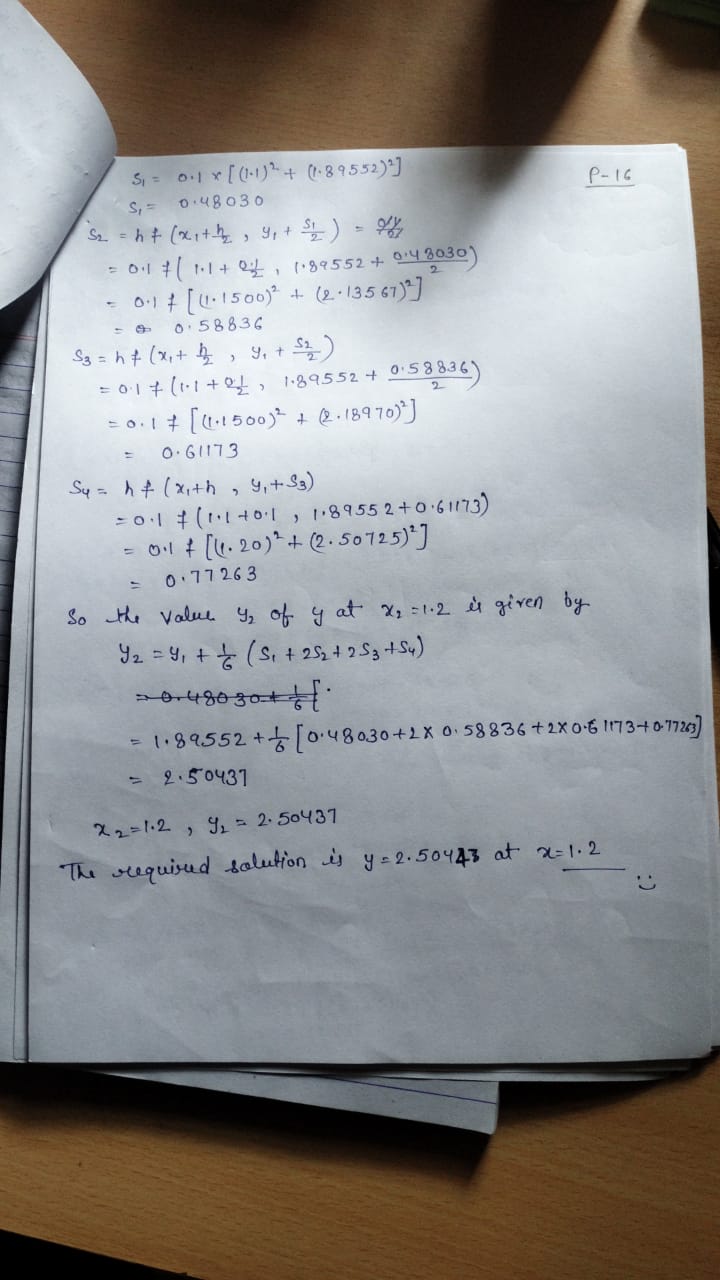 P-16
S₁ = 0.1 × [(1.1)² + (1.89552)²]
S₁ = 0.48030
S₂ = hf (x₁+h/2 , y₁ + S₁/2) =
= 0.1 f( 1.1 + 0.1/2 , 1.89552 + 0.48030/2)
= 0.1 f [(1.1500)² + (2.13567)²]
= 0.58836
S₃ = hf (x₁+ h/2 , y₁ + S₂/2)
= 0.1 f (1.1 + 0.1/2 , 1.89552 + 0.58836/2)
= 0.1 f [(1.1500)² + (2.18970)²]
= 0.61173
S₄ = hf (x₁+h , y₁+S₃)
= 0.1 f (1.1+0.1 , 1.89552+0.61173)
= 0.1 f [(1.20)² + (2.50725)²]
= 0.77263
So the value y₂ of y at x₂ = 1.2 is given by
y₂ = y₁ + 1/6 (S₁ + 2S₂ + 2S₃ + S₄)
= 0.48030 + 1/6 [
= 1.89552 + 1/6 [0.48030 + 2 × 0.58836 + 2 × 0.61173 + 0.77263]
= 2.50437
x₂ = 1.2 , y₂ = 2.50437
The required solution is y = 2.50443 at x = 1.2
:)